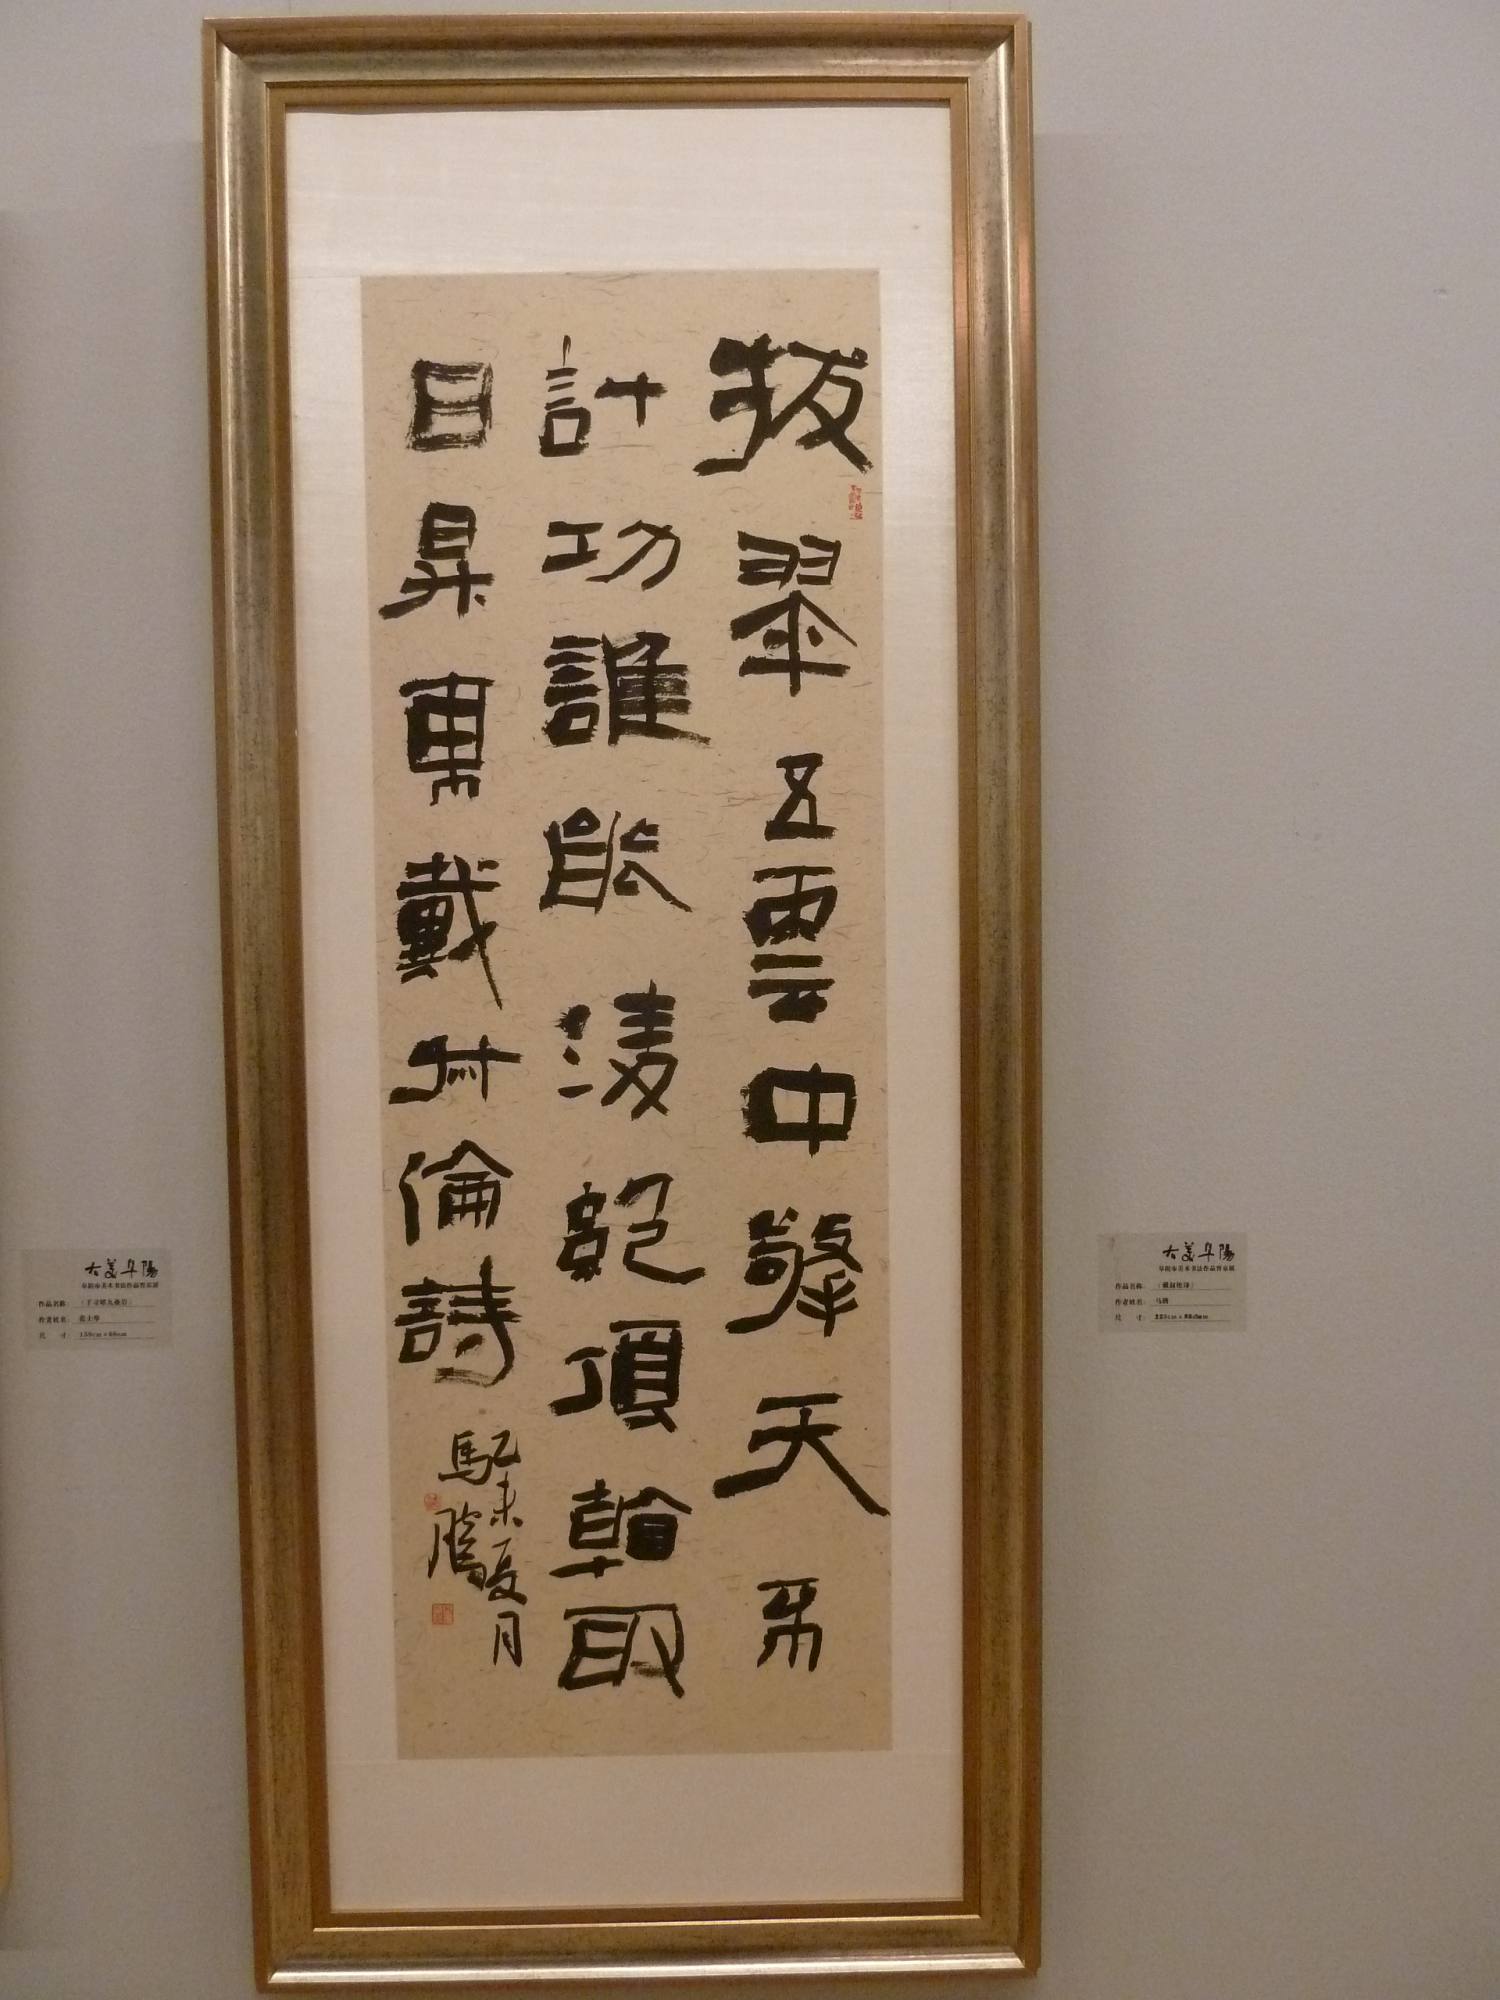 拔翠五雲中擎天不
計功誰能淩絕頂看取
日昇東戴叔倫詩
乙未夏月
馬騰
大美阜陽
阜阳市美术书法作品晋京展
作品名称:
作者姓名:
尺 寸:
大美阜陽
阜阳市美术书法作品晋京展
作品名称: 《戴叔伦诗》
作者姓名: 马腾
尺 寸: